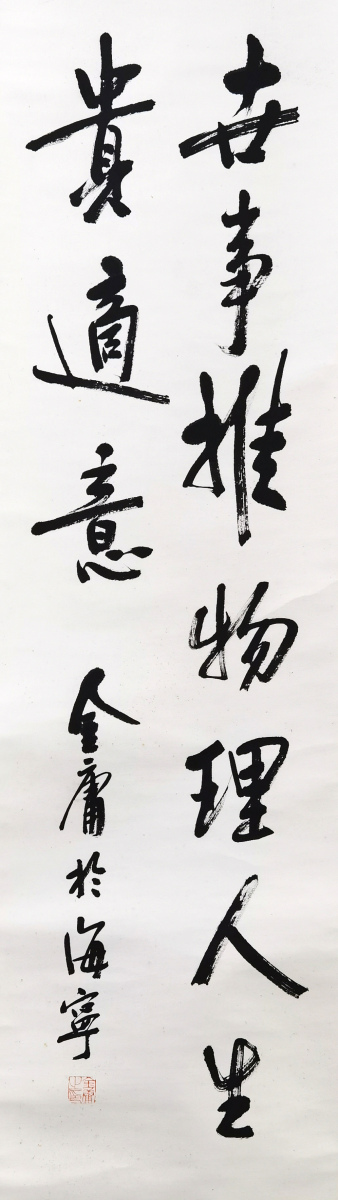 世事推物理人生
貴適意
金庸於海寧